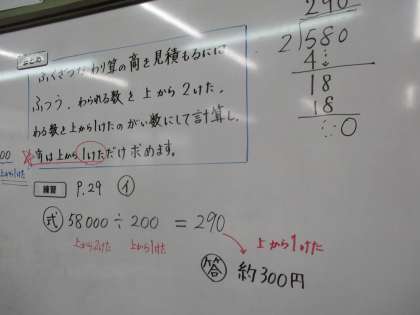 まとめ
ふくざつなわり算の商を見積もるには
ふつう、わられる数を上から2けた、
わる数を上から1けたのがい数にして計算し、
商は上から1けただけ求めます。
00
上から1けた
練習 P.29 ㋑
式 58000÷200 = 290
上から2けた 上から1けた
上から1けた
答 約300円
290
2)580
4
18
18
0